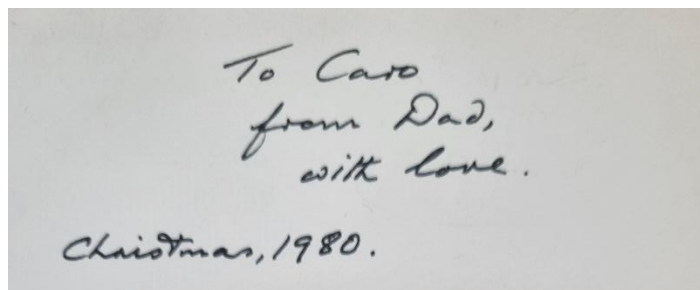 To Caro
from Dad,
with love.
Christmas, 1980.